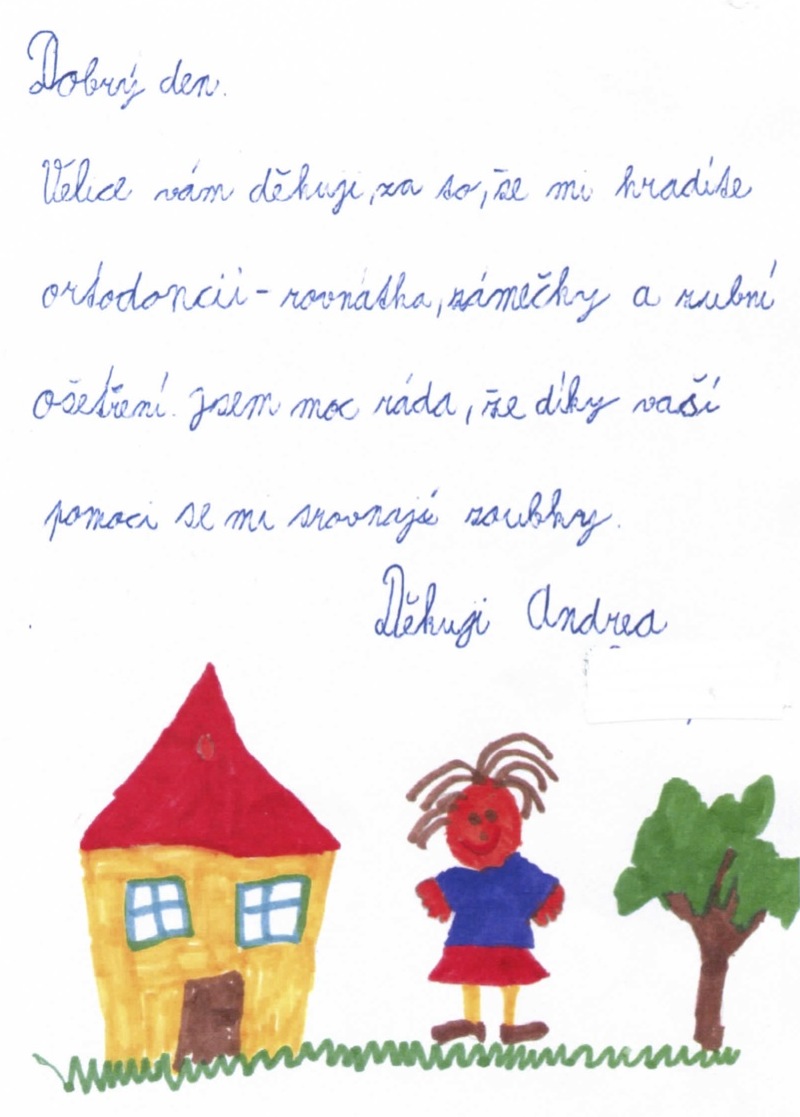 Dobrý den.
Velice vám děkuji, za to, že mi hradíte
ortodoncii - rovnátka, zámečky a zubní
ošetření. Jsem moc ráda, že díky vaší
pomoci se mi srovnají zoubky.
Děkuji Andrea